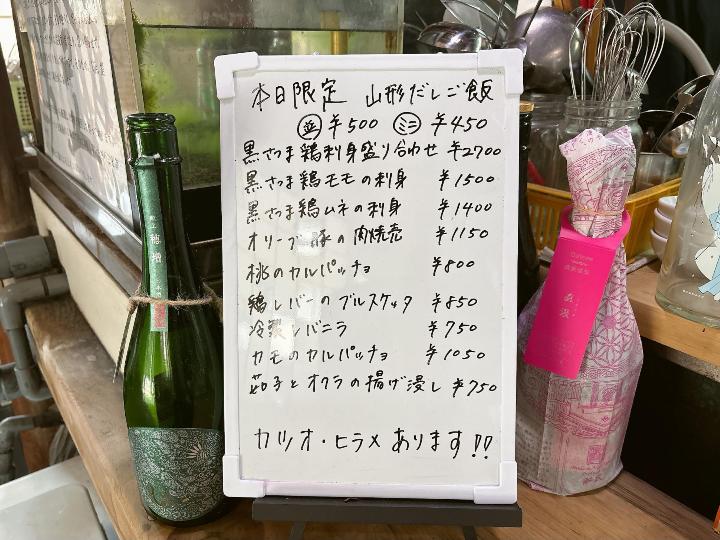 本日限定 山形だしご飯
並 ¥500 ミニ ¥450
黒さつま鶏刺身盛り合わせ ¥2700
黒さつま鶏モモの刺身 ¥1500
黒さつま鶏ムネの刺身 ¥1400
オリーブ豚の肉焼売 ¥1150
桃のカルパッチョ ¥800
鶏レバーのブルスケッタ ¥850
冷製レバニラ ¥750
カモのカルパッチョ ¥1050
茄子とオクラの揚げ浸し ¥750
カツオ・ヒラメ あります!!